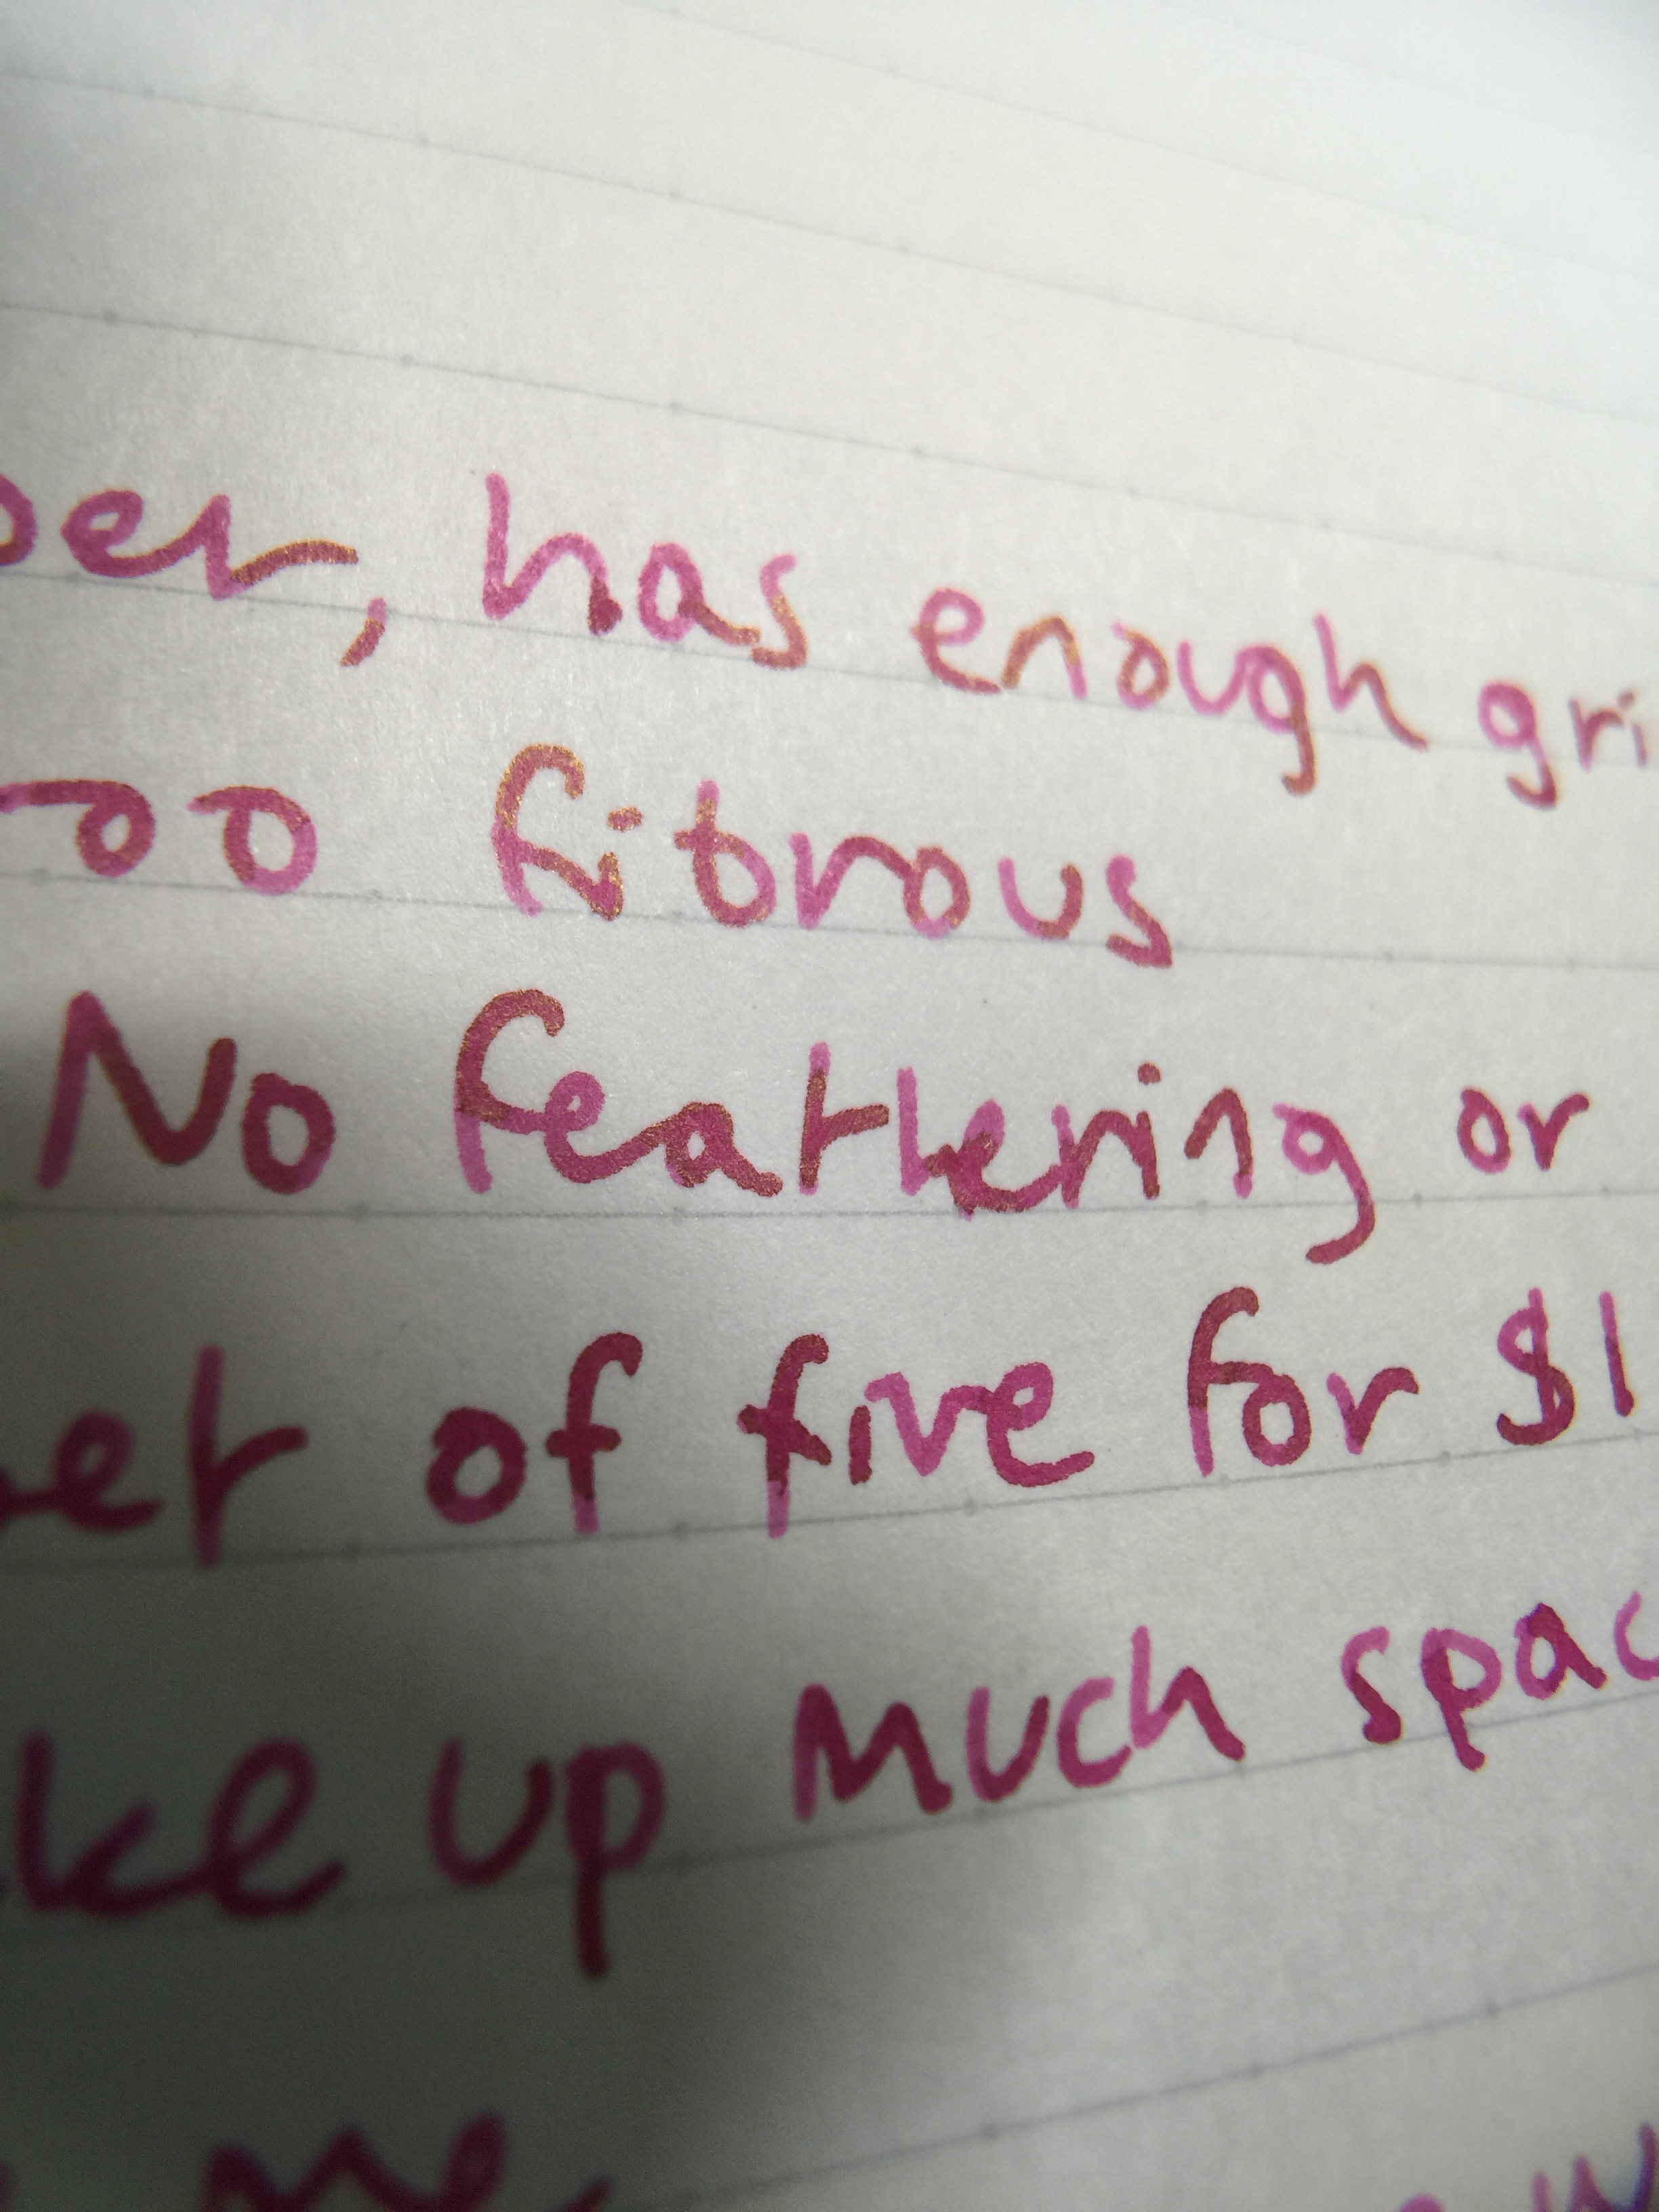 per, has enough gri
too fibrous
No feathering or
set of five for $1
ke up much spac
me